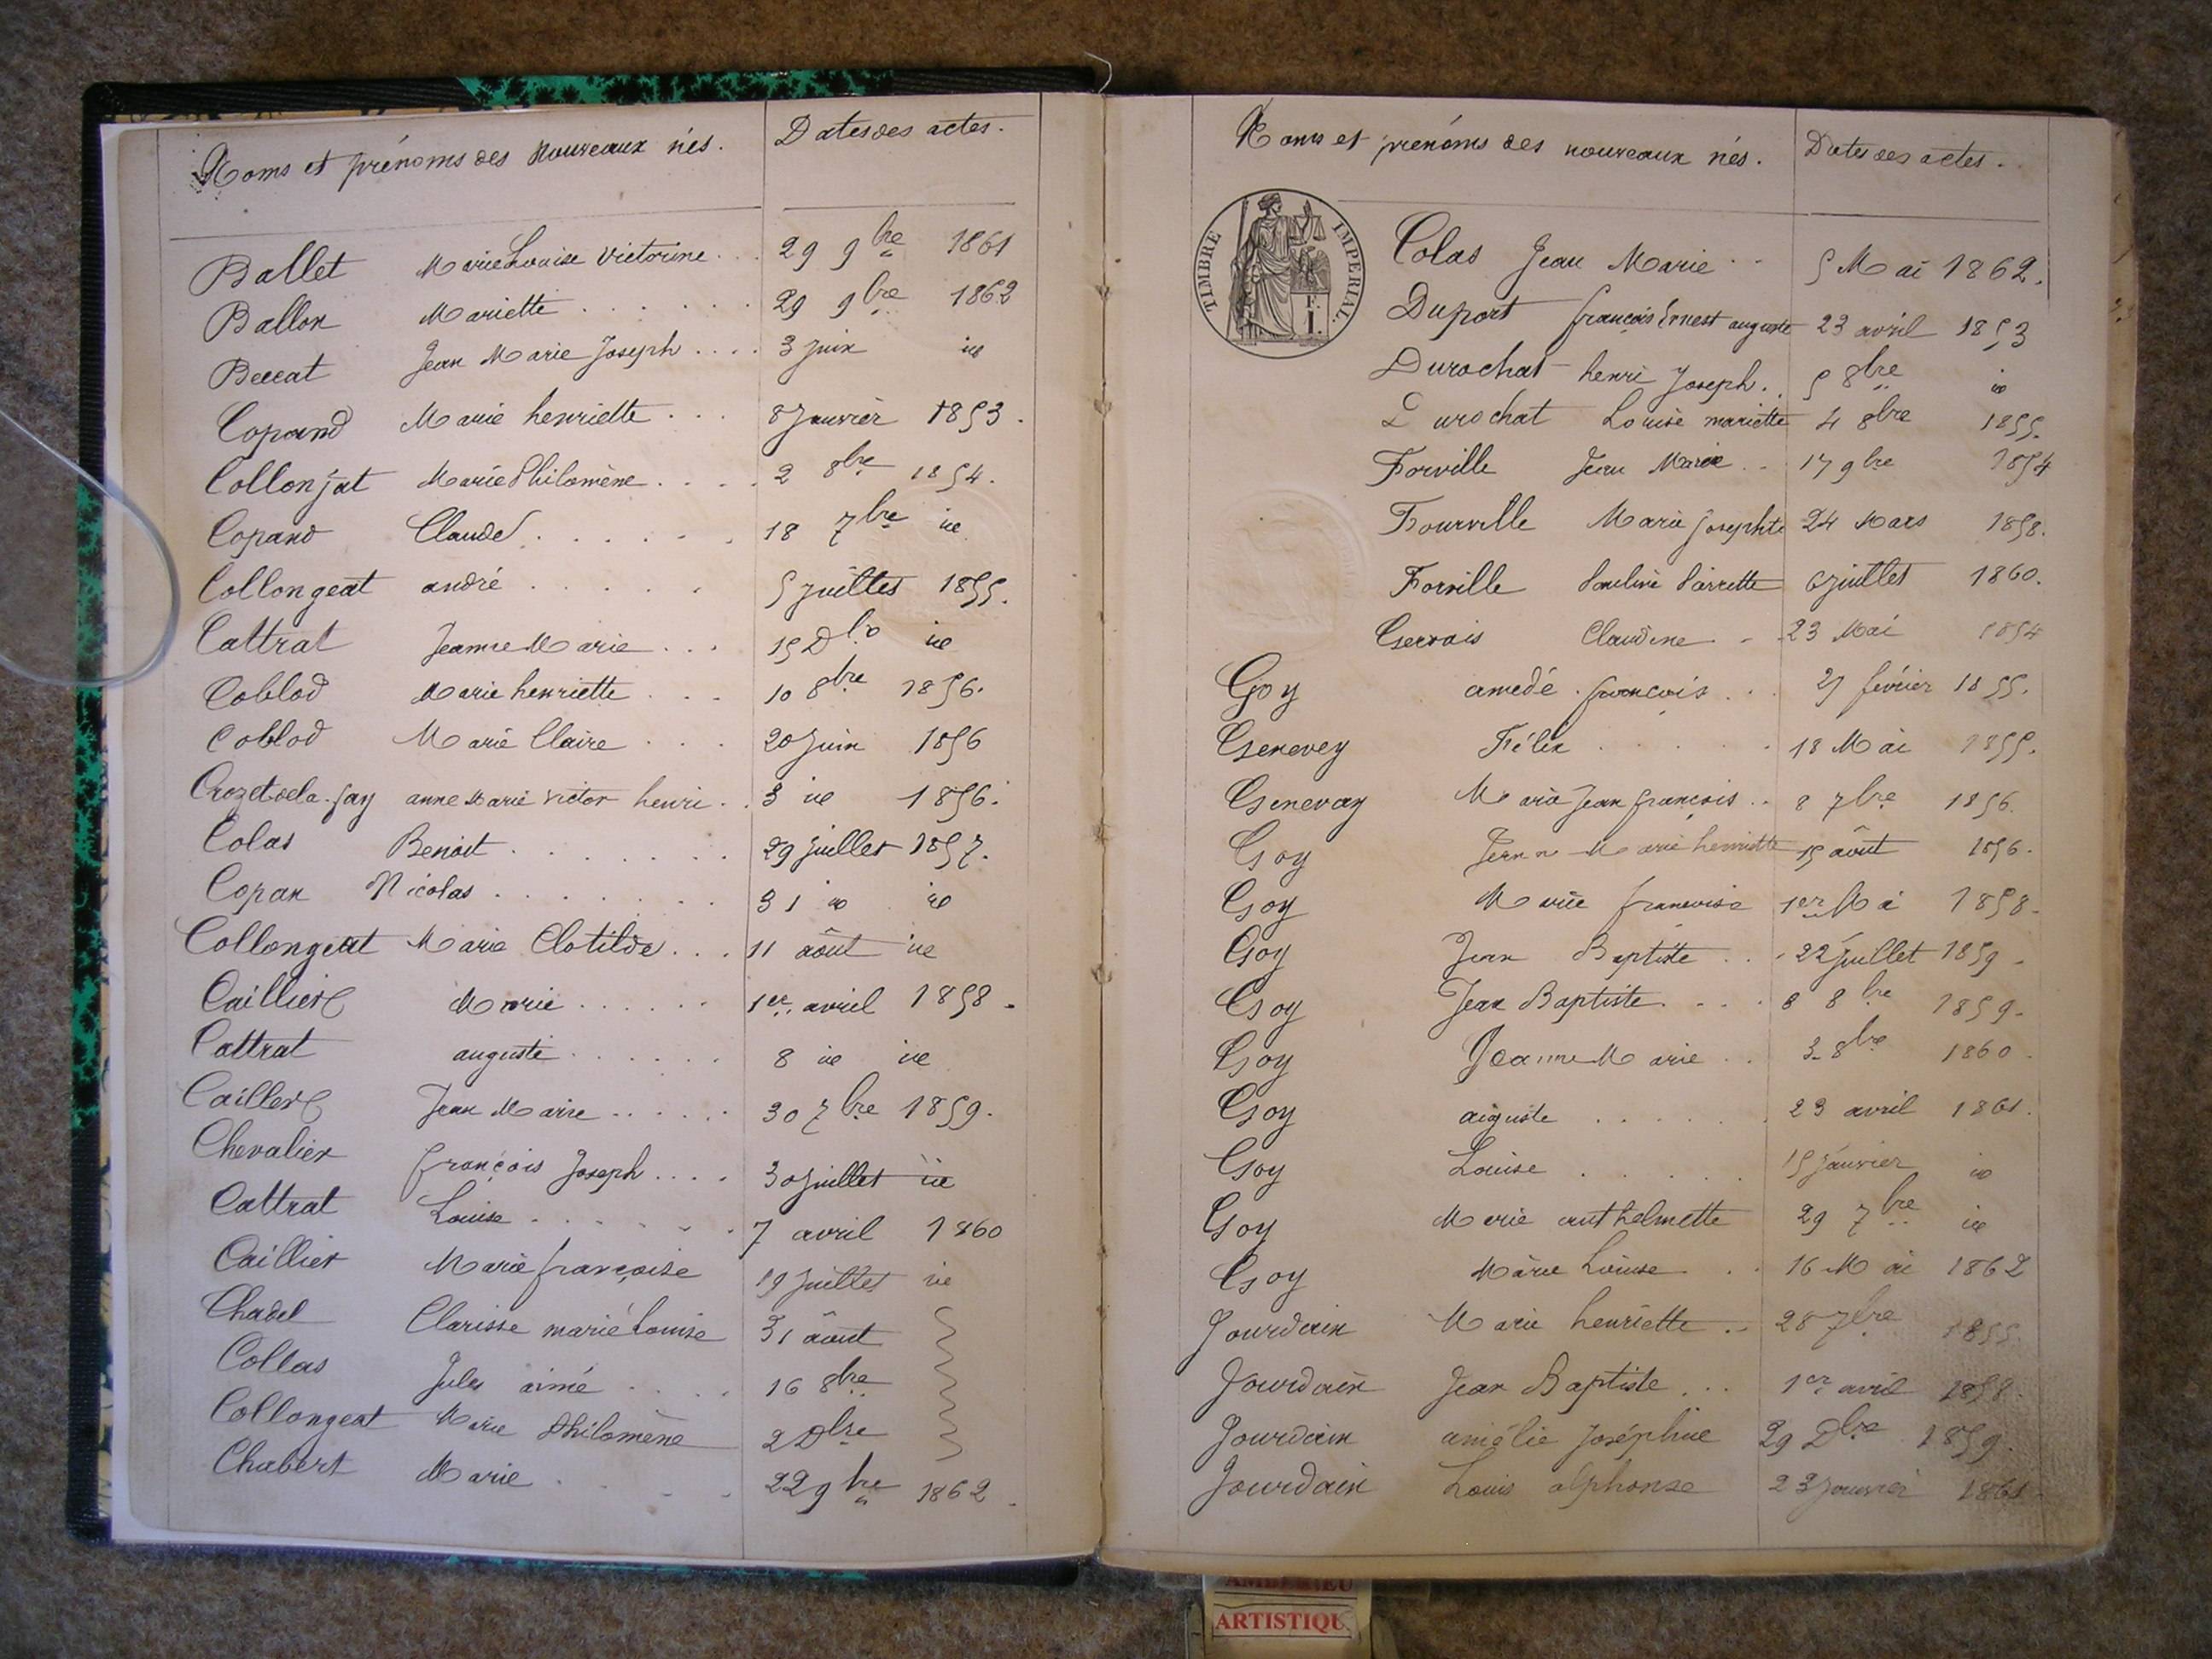 Noms et prénoms des nouveaux nés. Dates des actes.
Ballet Marie Louise Victorine... 29 9bre 1861
Ballon Mariette...... 29 9bre 1862
Beccat Jean Marie Joseph.... 3 juin id
Copand Marie henriette... 8 Janvier 1853.
Collonjat Marie Philomène.... 2 8bre 1854.
Copand Claude...... 18 7bre id
Collongeat andré...... 5 Juillet 1855.
Cattrat Jeanne Marie... 15 Dbre id
Coblod Marie henriette... 10 8bre 1856.
Coblod Marie Claire... 20 Juin 1856
Crozet de la-fay anne Marie victor henri.. 3 id 1856.
Colas Benoit....... 29 juillet 1857.
Copan Nicolas....... 31 id id
Collongeat Marie Clotilde... 11 août id
Caillier Marie...... 1er avril 1858.
Cattrat auguste...... 8 id id
Cailler Jean Marie..... 30 7bre 1859.
Chevalier françois Joseph.... 30 Juillet id
Cattrat Louise...... 7 avril 1860
Caillier Marie françoise 19 Juillet id
Chadel Clarisse marie Louise 31 août
Collas Jules aimé.... 16 8bre
Collongeat Marie Philomène 2 Dbre
Chabert Marie.... 22 9bre 1862.
Noms et prénoms des nouveaux nés. Dates des actes.
TIMBRE IMPERIAL.
E. I.
Colas Jean Marie.. 5 Mai 1862.
Duport françois Ernest auguste 23 avril 1853
Durochat henri Joseph. 5 8bre id
Durochat Louise mariette 4 8bre 1855.
Forville Jean Marie.. 17 9bre 1854
Fourville Marie Josephte 24 Mars 1858.
Forville Pauline Pierrette 6 juillet 1860.
Gervais Claudine.. 23 Mai 1854
Goy amedé françois... février 1855.
Genevey Félix..... 18 Mai 1855.
Genevay Marie Jean françois.. 8 7bre 1856.
Goy Marie henriette 15 août 1856.
Goy Marie francoise 1er Mai 1858.
Goy Jean Baptiste... 22 Juillet 1859.
Goy Jean Baptiste.... 8 8bre 1859.
Goy Jeanne Marie.. 3 8bre 1860.
Goy auguste...... 23 avril 1861.
Goy Louise..... 15 janvier id
Goy Marie anthelmette 29 7bre id
Goy Marie Louise.. 16 Mai 1862
Jourdain Marie henriette.. 28 7bre 1855
Jourdain Jean Baptiste... 1er avril 1858.
Jourdain amélie Joséphine 29 Dbre 1859.
Jourdain Louis alphonse 23 janvier 1861
AMBERIEU
ARTISTIQU